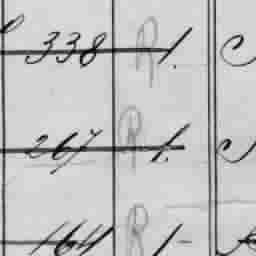 338 R 1.
267 R 1.
164 R 1-